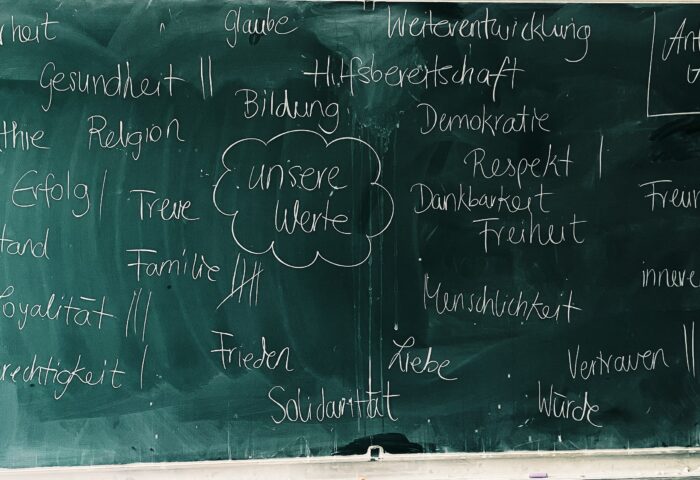 rheit
Glaube
Weiterentwicklung
Ant
Gesundheit ||
Hilfsbereitschaft
Bildung
Demokratie
thie
Religion
unsere
Werte
Respekt |
Erfolg |
Treue
Dankbarkeit
Freun
Freiheit
tand
Familie
innere
oyalität |||
Menschlichkeit
rechtigkeit |
Frieden
Liebe
Vertrauen ||
Solidarität
Würde